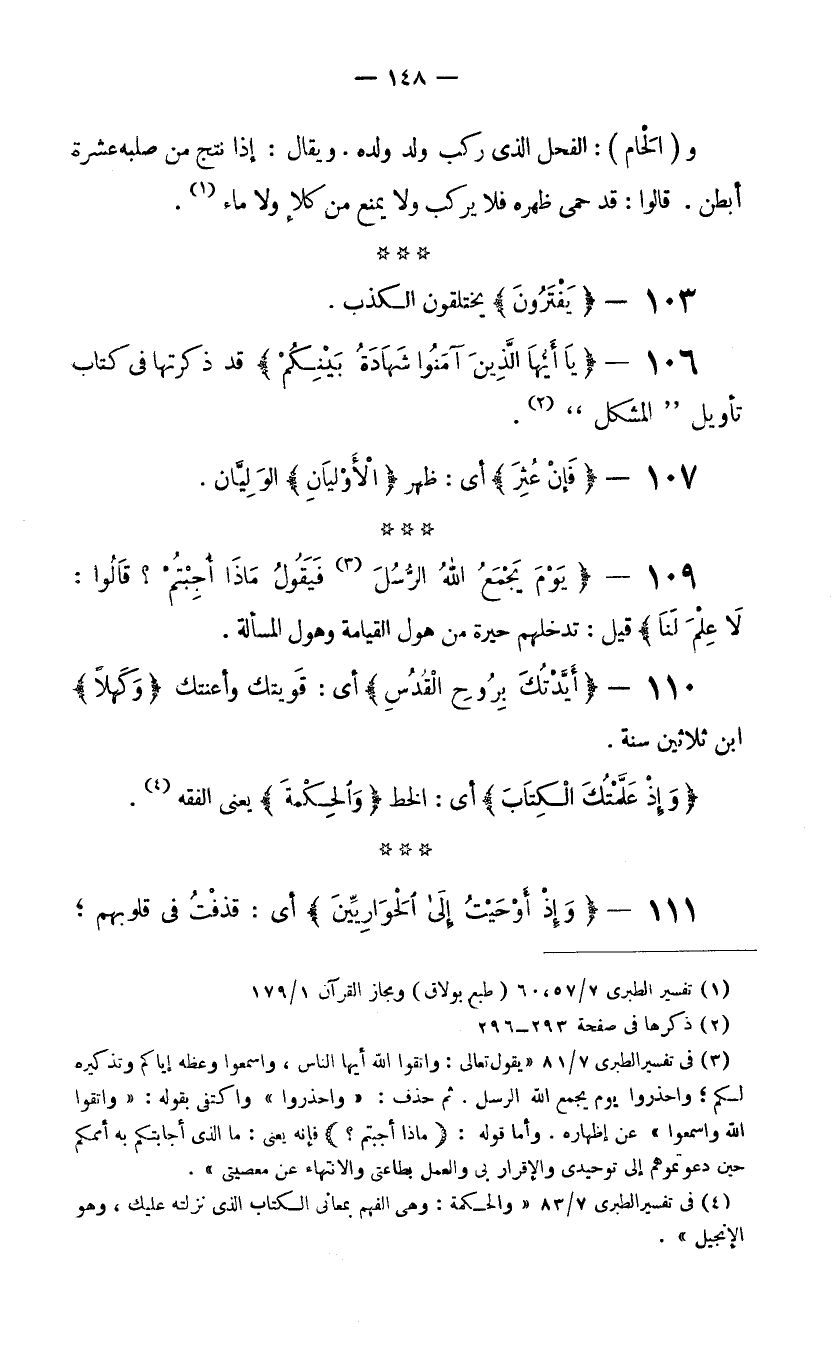 — ١٤٨ —
و ( الْحَام ) : الفحل الذى ركب ولد ولده . ويقال : إذا نتج من صلبه عشرة
أبطن . قالوا : قد حمى ظهره فلا يركب ولا يمنع من كلاٍ ولا ماء (١) .
☆ ☆ ☆
١٠٣ — ﴿ يَفْتَرُونَ ﴾ يختلقون الكذب .
١٠٦ — ﴿ يَا أَيُّهَا الَّذِينَ آمَنُوا شَهَادَةُ بَيْنِكُمْ ﴾ قد ذكرتها فى كتاب
تأويل ” المشكل “ (٢) .
١٠٧ — ﴿ فَإِنْ عُثِرَ ﴾ أى : ظهر ﴿ الْأَوْليَانِ ﴾ الوَلِيَّان .
☆ ☆ ☆
١٠٩ — ﴿ يَوْمَ يَجْمَعُ اللهُ الرُّسُلَ (٣) فَيَقُولُ مَاذَا أُجِبْتُمْ ؟ قَالُوا :
لَا عِلْمَ لَنَا ﴾ قيل : تدخلهم حيرة من هول القيامة وهول المسألة .
١١٠ — ﴿ أَيَّدْتُكَ بِرُوحِ الْقُدُسِ ﴾ أى : قويتك وأعنتك ﴿ وَكَهْلاً ﴾
ابن ثلاثين سنة .
﴿ وَإِذْ عَلَّمْتُكَ الْكِتَابَ ﴾ أى : الخط ﴿ وَالْحِكْمَةَ ﴾ يعنى الفقه (٤) .
☆ ☆ ☆
١١١ — ﴿ وَإِذْ أَوْحَيْتُ إِلَىٰ الْحَوَارِيِّينَ ﴾ أى : قذفْتُ فى قلوبهم ؛
(١) تفسير الطبرى ٥٧/٧ ، ٦٠ ( طبع بولاق ) ومجاز القرآن ١٧٩/١
(٢) ذكرها فى صفحة ٢٩٣ـ٢٩٦
(٣) فى تفسير الطبرى ٨١/٧ « يقول تعالى : واتقوا الله أيها الناس ، واسمعوا وعظه إياكم وتذكيره
لكم ؛ واحذروا يوم يجمع الله الرسل . ثم حذف : « واحذروا » واكتفى بقوله : « واتقوا
الله واسمعوا » عن إظهاره . وأما قوله : ﴿ ماذا أجبتم ؟ ﴾ فإنه يعنى : ما الذى أجابتكم به أممكم
حين دعوتموهم إلى توحيدى والإقرار بى والعمل بطاعتى والانتهاء عن معصيتى » .
(٤) فى تفسير الطبرى ٨٣/٧ « والحكمة : وهى الفهم بمعانى الكتاب الذى نزلته عليك ، وهو
الإنجيل » .